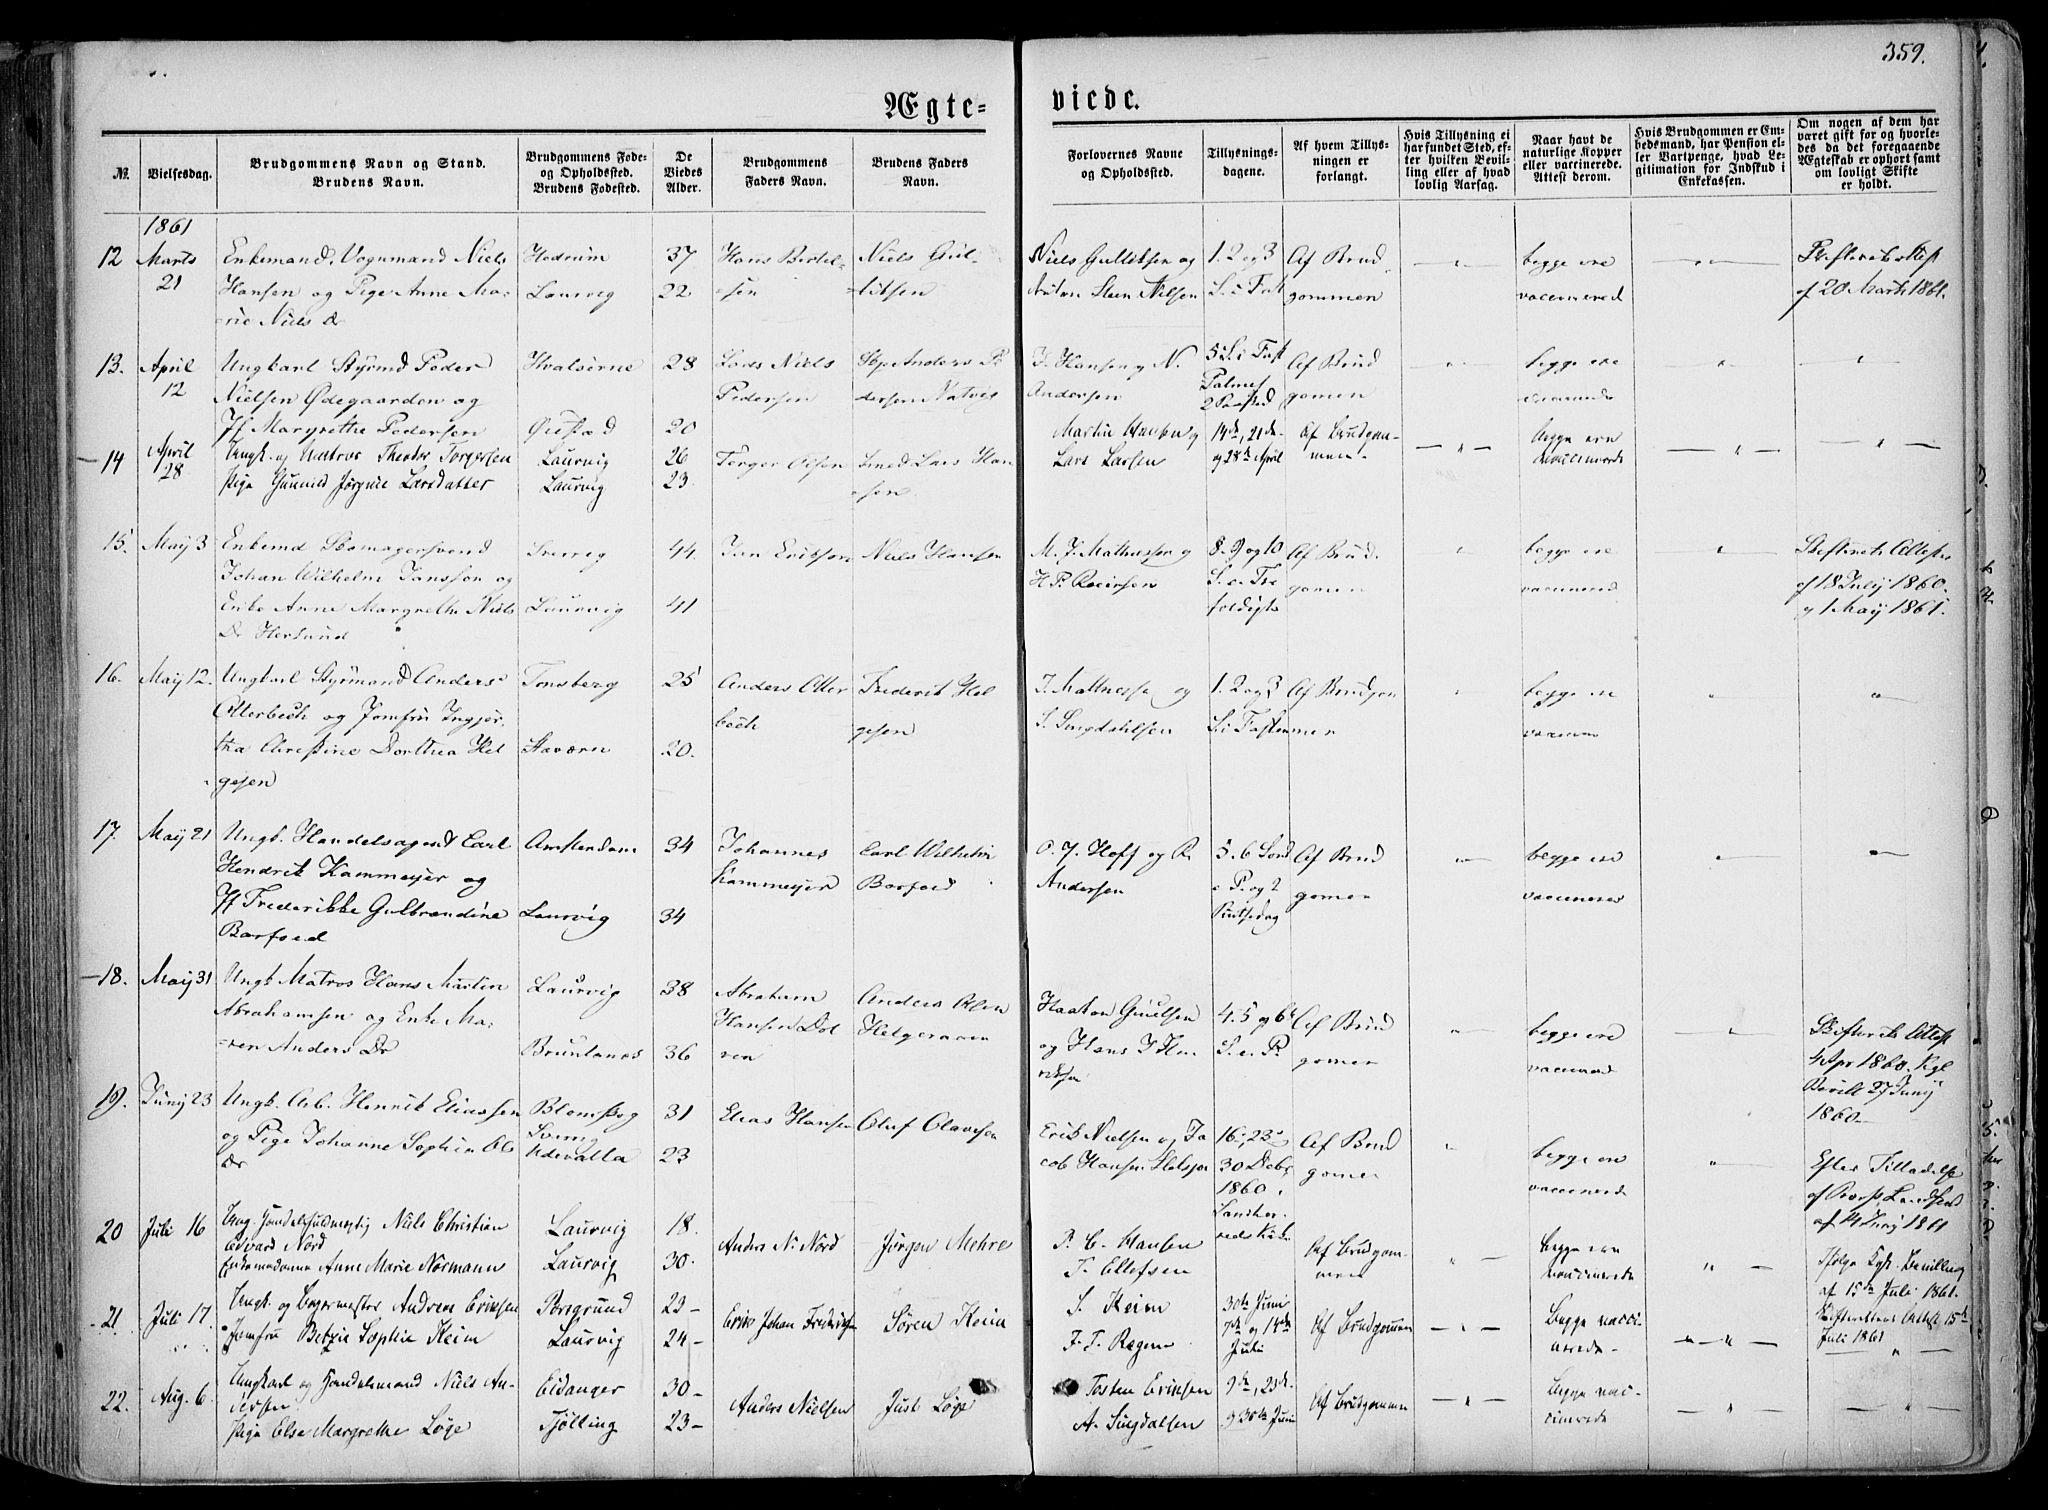 359.
Ægte=
viede.
№.
Vielsesdag.
Brudgommens Navn og Stand.
Brudens Navn.
Brudgommens Føde-
og Opholdssted.
Brudens Fødested.
De
Viedes
Alder.
Brudgommens
Faders Navn.
Brudens Faders
Navn.
Forlovernes Navne
og Opholdssted.
Tillysnings-
dagene.
Af hvem Tillys-
ningen er
forlangt.
Hvis Tillysning ei
har fundet Sted, ef-
ter hvilken Bevil-
ling eller af hvad
lovlig Aarsag.
Naar havt de
naturlige Kopper
eller vaccinerede.
Attest derom.
Hvis Brudgommen er Em-
bedsmand, har Pension el-
ler Vartpenge, hvad Le-
gitimation for Indskud i
Enkekassen.
Om nogen af dem har
været gift før og hvorle-
des da det foregaaende
Ægteskab er ophørt samt
om lovligt Skifte
er holdt.
1861
12 Marts 21
Enkemand, Vognmand Niels
Hansen og Pige Anne Ma-
rie Niels Dr
Hedrum 37
Laurvig 22
Hans Bertel-
sen
Niels Gul-
liksen
Niels Gulliksen og
Anton Steen Nilsen
1. 2 og 3
S. i Fast
Af Brud
gommen
begge ere
vaccinered
Skifterets Attest
af 20 Marts 1861.
13. April 12
Ungkarl Styrmd Peder
Nielsen Ødegaarden og
Jf Margrethe Pedersen
Hvaløerne 28
Øiestad 20
Lods Niels
Pedersen
Skp Anders Pe
dersen Natvig
J. Hansen og N.
Andersen
5 S. i Fast
Palmes
2 Paasked
Af Brud
gomen
begge ere
vaccinerede
14 April 28
Ungk. og Matros Theodor Torgersen
Pige Gunnild Jørgine Larsdatter
Laurvig 26
Laurvig 23.
Torger Olsen
Smed Lars Han
sen.
Martin Hansen og
Lars Larsen
14de, 21de
og 28de April
Af Brudgom-
men.
Begge ere
vaccinerede
15. Maij 3
Enkemd Skomagersvend
Johan Wilhelm Jansson og
Enke Anne Margrethe Niels
Dr Hersund
Sverrig 44.
Laurvig 41
Jan Erikson
Niels Hansen
M. J. Mathessen og
H P. Reiersen
8. 9 og 10
S. e. Tre
foldigh
Af Brud.
gomen
begge ere
vaccinered
Skifterets Attester
af 18 Julij 1860.
og 1 Maij 1861.
16. Maij 12.
Ungkarl Styrmand Anders
Otterbech og Jomfru Ingjer.
tha Christine Dorthea Hel
gesen
Tønsberg 25
Stavern 20.
Anders Otter
bech
Frederik Hel
gesen
J. Mathesse og
S. Singdahlsen
1. 2 og 3
S. i Fasten
Af Brudgom
mer
begge ere
vaccin
17. Maij 21
Ungk. Handelsagent Carl
Hendrik Kammeijer og
Jf Frederikke Gulbrandine
Barfoed
Amsterdam 34
Laurvig 34
Johannes
Kammeijer
Carl Wilhelm
Barfoed
O. J. Hoff og R.
Andersen
5. 6 Sønd
e P. og 2
Pintsedag
Af Brud
gomen
begge ere
vaccineres
18. Maij 31
Ungk Matros Hans Martin
Abrahamsen og Enke Ma-
ren Anders Dr
Laurvig 38
Brunlanes 36
Abraham
Hansen Dol
ven
Anders Olsen
Helgeroen
Haakon Gundsen
og Hans J Hen
riksen
4. 5 og 6t
S. e. P.
Af Brud
gomen
begge ere
vaccinered
Skifterets Attest
4 Apr 1860. Kgl
Bevill 27 Junij
1860.
19. Junij 23
Ungk. Arb. Henrik Eliassen
og Pige Johanne Sophie Ols
Dr
Blomskog 31
Sverrig
Udevalla 23
Elias Hansen
Oluf Olavesen
Erik Nielsen og Ja
cob Hansen
16, 23,
30 Decbr
1860.
Sandher
reds Kirke
Af Brud
gomen
begge ere
vaccinerede
Efter Tilladelse
af Provst
af 14 Junij 1861
20 Juli 16
Ung. Handelsfuldmægtig Niels Christian
Edvard Nord
Enkemadamme Anne Marie Normann
Laurvig 18.
Laurvig 30.
Anders N. Nord
Jørgen Mehre
P. C. Hansen
T. Ellefsen
Af Brudgom-
men
Begge ere
vaccinerede
Ifølge Kgl. Bevilling
af 15de Juli 1861.
Skifterettens Attest 15de
Juli 1861
21. Juli 17.
Ungk. og Bagermester Andreas Eriksen
Jomfru Betzie Sophie Keim
Porsgrund 23
Laurvig 24
Erik Johan Fredriksen
Søren Keim
S. Keim
F. T. Ragen
30te Juni
7de og 14de
Juli
Af Brudgommen
Begge vacci
nerede
22. Aug. 6.
Ungkarl og Handelsmand Niels An-
dersen
Pige Else Margrethe Løge
Eidanger 30
Tjølling 23
Anders Nielsen
Just Løge
Tosten Eriksen
A. Singdalsen
9de, 23de
og 30te Juni
Af Brudgommen
Begge vac-
cinerede